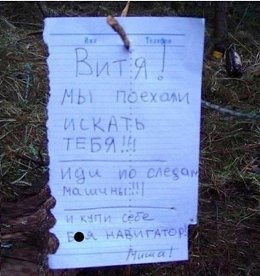 Витя!
мы поехали
искать
тебя!!!
иди по следам
машины!!!
и купи себе
навигатор!
Миша!